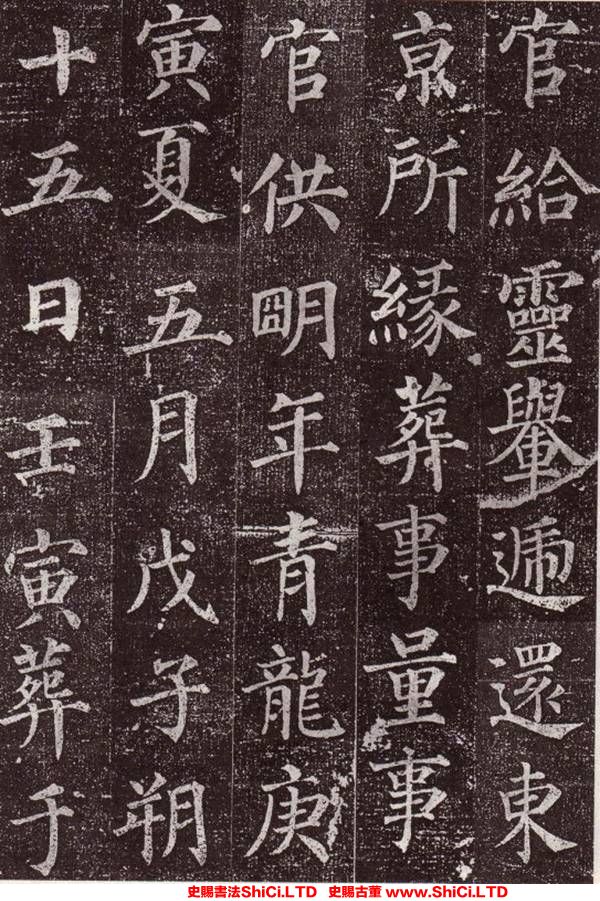 官給靈轝遞還東
亰所緣葬事量事
官供明年青龍庚
寅夏五月戊子朔
十五日壬寅葬于
史賜書法ShiCi.LTD 史賜古董 www.ShiCi.LTD